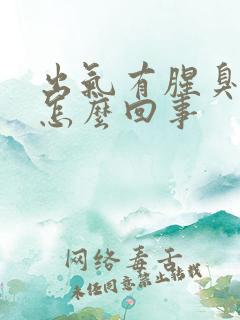 出氣有腥臭
怎麼回事
网络毒舌
未经同意禁止转载